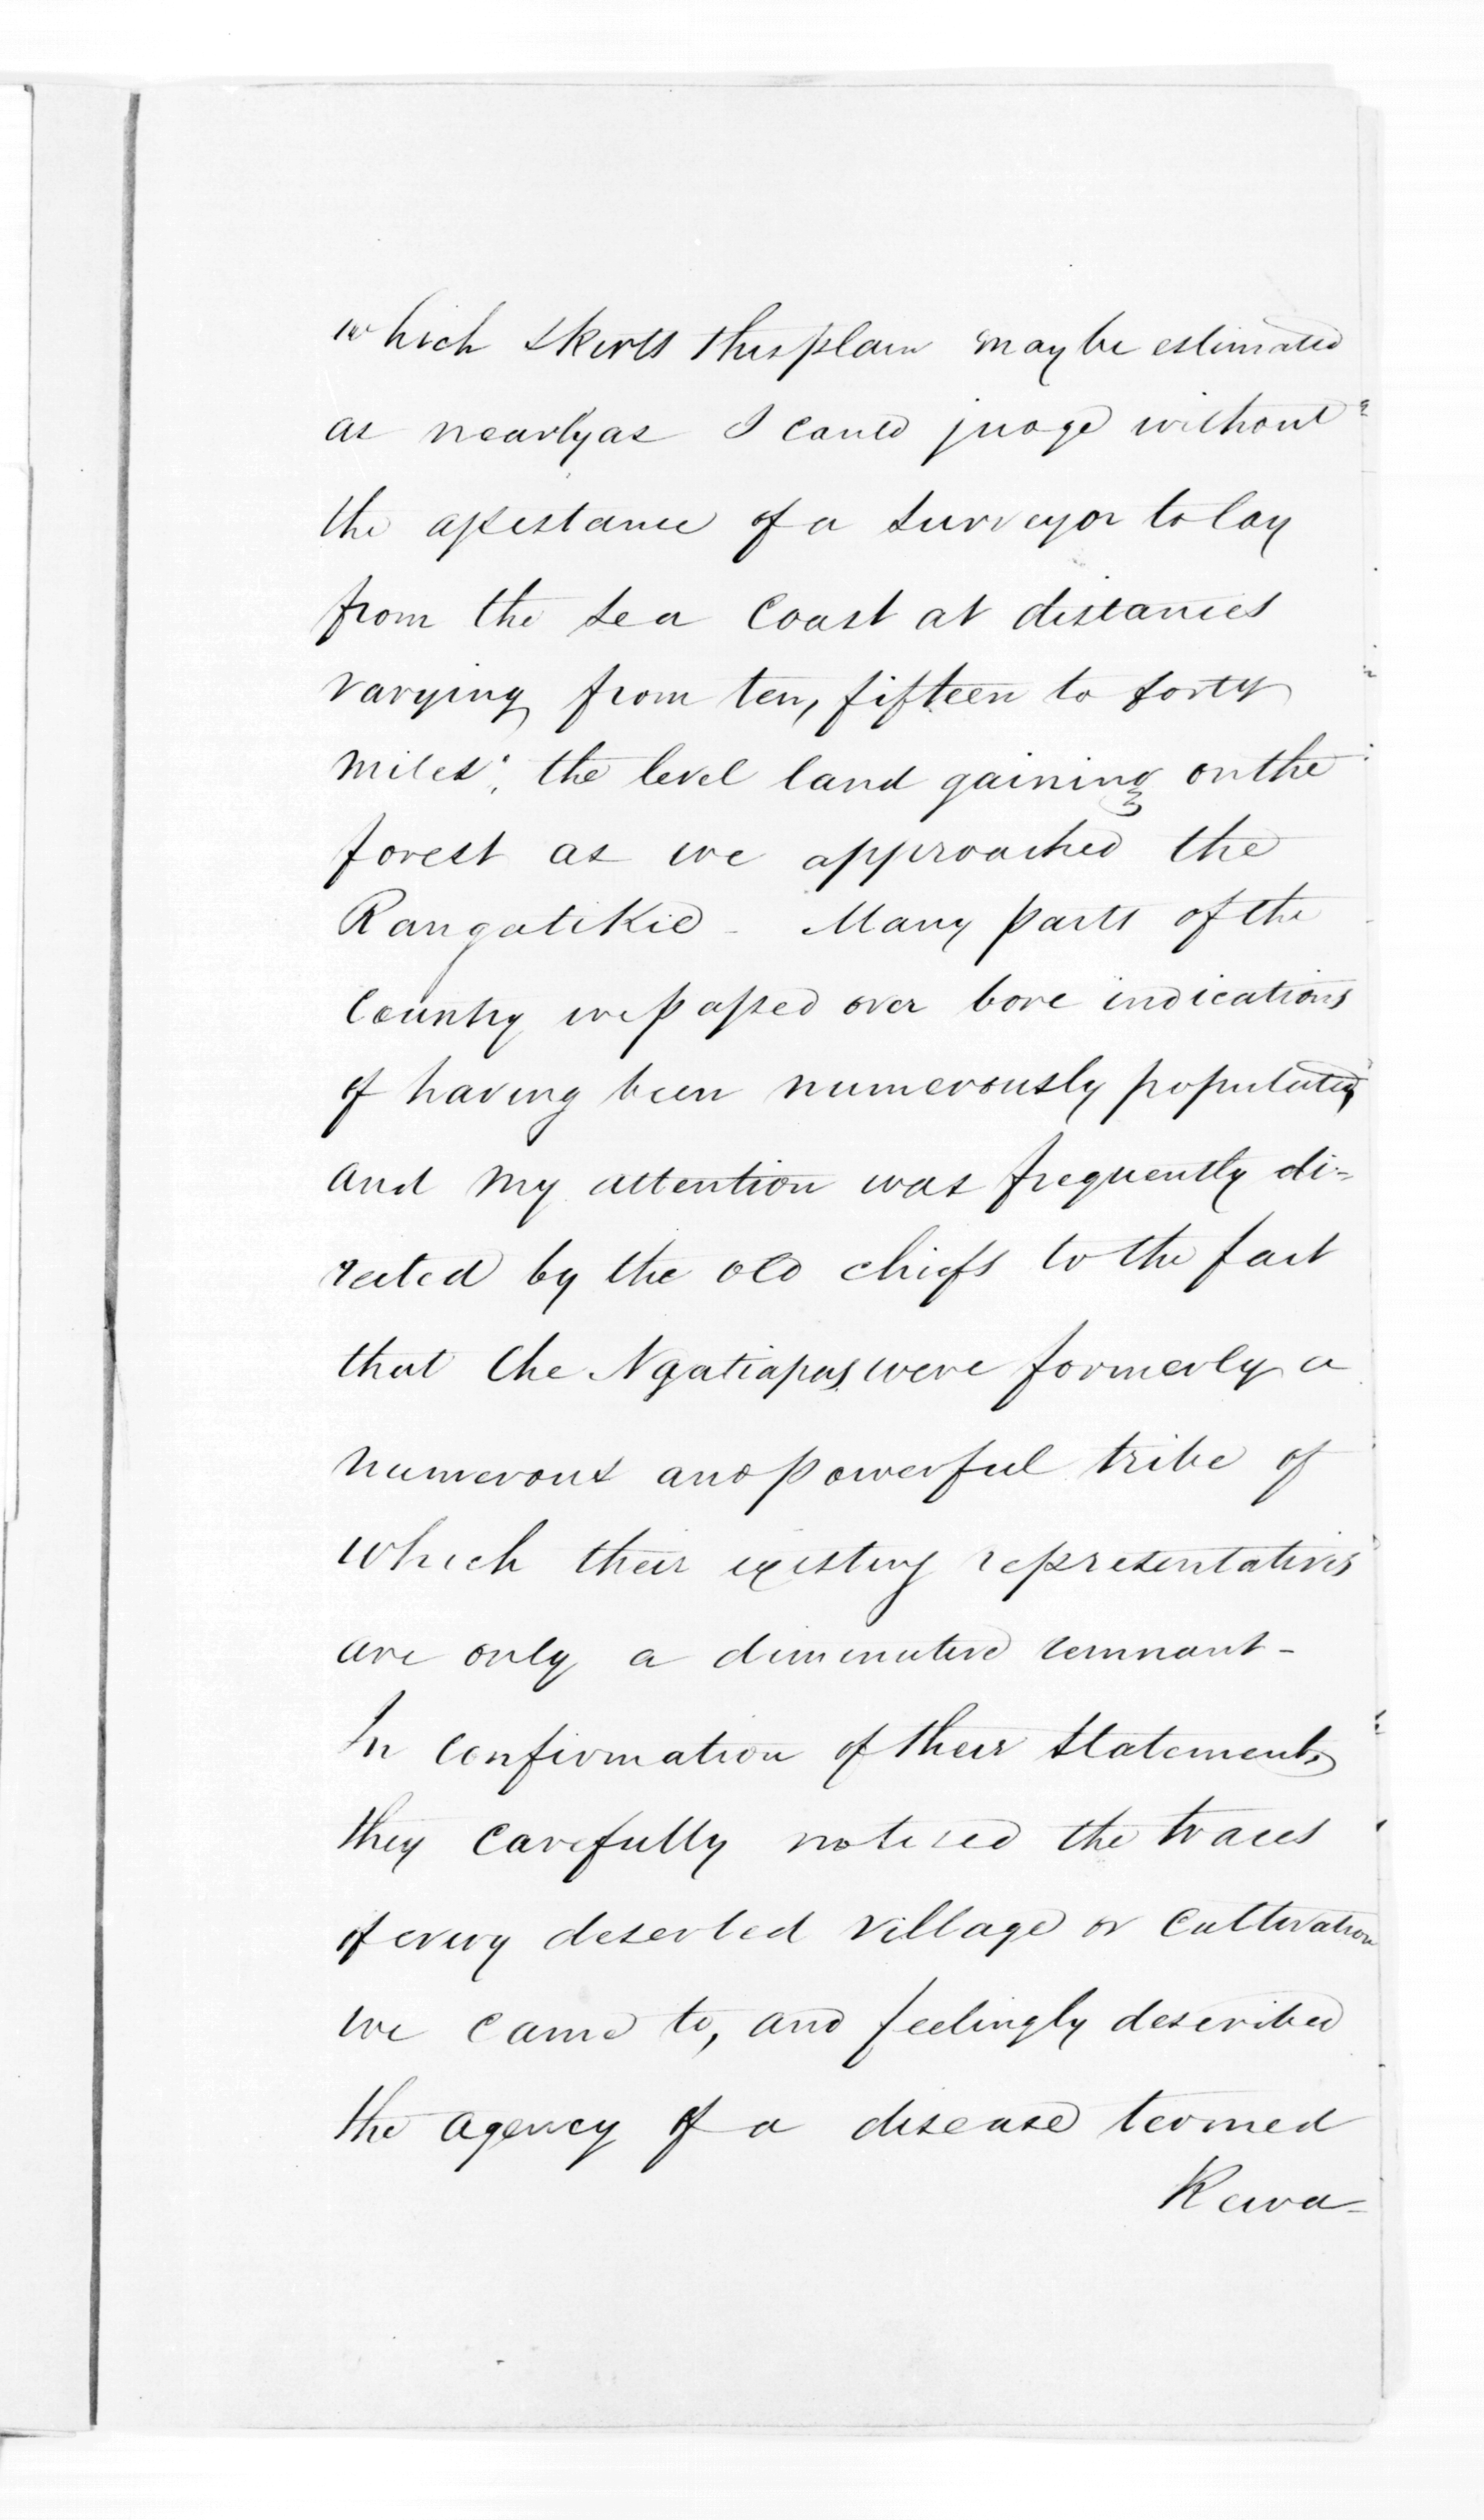 which skirts this plain may be estimated
as nearly as I could judge without
the assistance of a surveyor to lay
from the sea coast at distances
varying from ten, fifteen to forty
miles; the level land gaining on the
forest as we approached the
Rangatikie - Many parts of the
Country we passed over bore indications
of having been numerously populated,
and my attention was frequently di-
rected by the old chiefs to the fact
that the Ngatiapas were formerly a
numerous and powerful tribe of
which their existing representatives
are only a diminutive remnant -
In confirmation of their statements
they carefully noticed the traces
of every deserted village or cultivation
we came to, and feelingly described
the agency of a disease termed
Rewa-